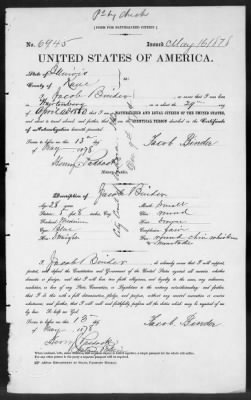 [FORM FOR NATURALIZED CITIZEN.]
No. 6945 Issued May 16 1878
UNITED STATES OF AMERICA.
State of Illinois
County of Kane
I, Jacob Binder, do swear that I was born
in on or about the 29 day
of April
NATURALIZED AND LOYAL CITIZEN of the United States,
and IDENTICAL PERSON described in the Certificate
of Naturalization herewith presented.
Sworn to before me this 13th
day of May 1878
Jacob Binder
Notary Public.
Description of Jacob Binder
Age: 28 years
Mouth: small
Stature: 5 feet 8 inches, Eng.
Chin: round
Forehead: Medium
Hair: brown
Eyes: Blue
Complexion: fair
Nose: Straight
Face: round
I, Jacob Binder, do solemnly swear that I will support,
protect, and defend the Constitution and Government of the United States against all enemies, whether
domestic or foreign; and that I will bear true faith, allegiance, and loyalty to the same, any ordinance,
resolution, or law of any State, Convention, or Legislature to the contrary notwithstanding; and further,
that I do this with a full determination, pledge, and purpose, without any mental reservation or evasion
whatsoever; and further, that I will well and faithfully perform all the duties which may be required of me
by law. So help me God.
Sworn to before me this 13th
day of May, 1878
Jacob Binder